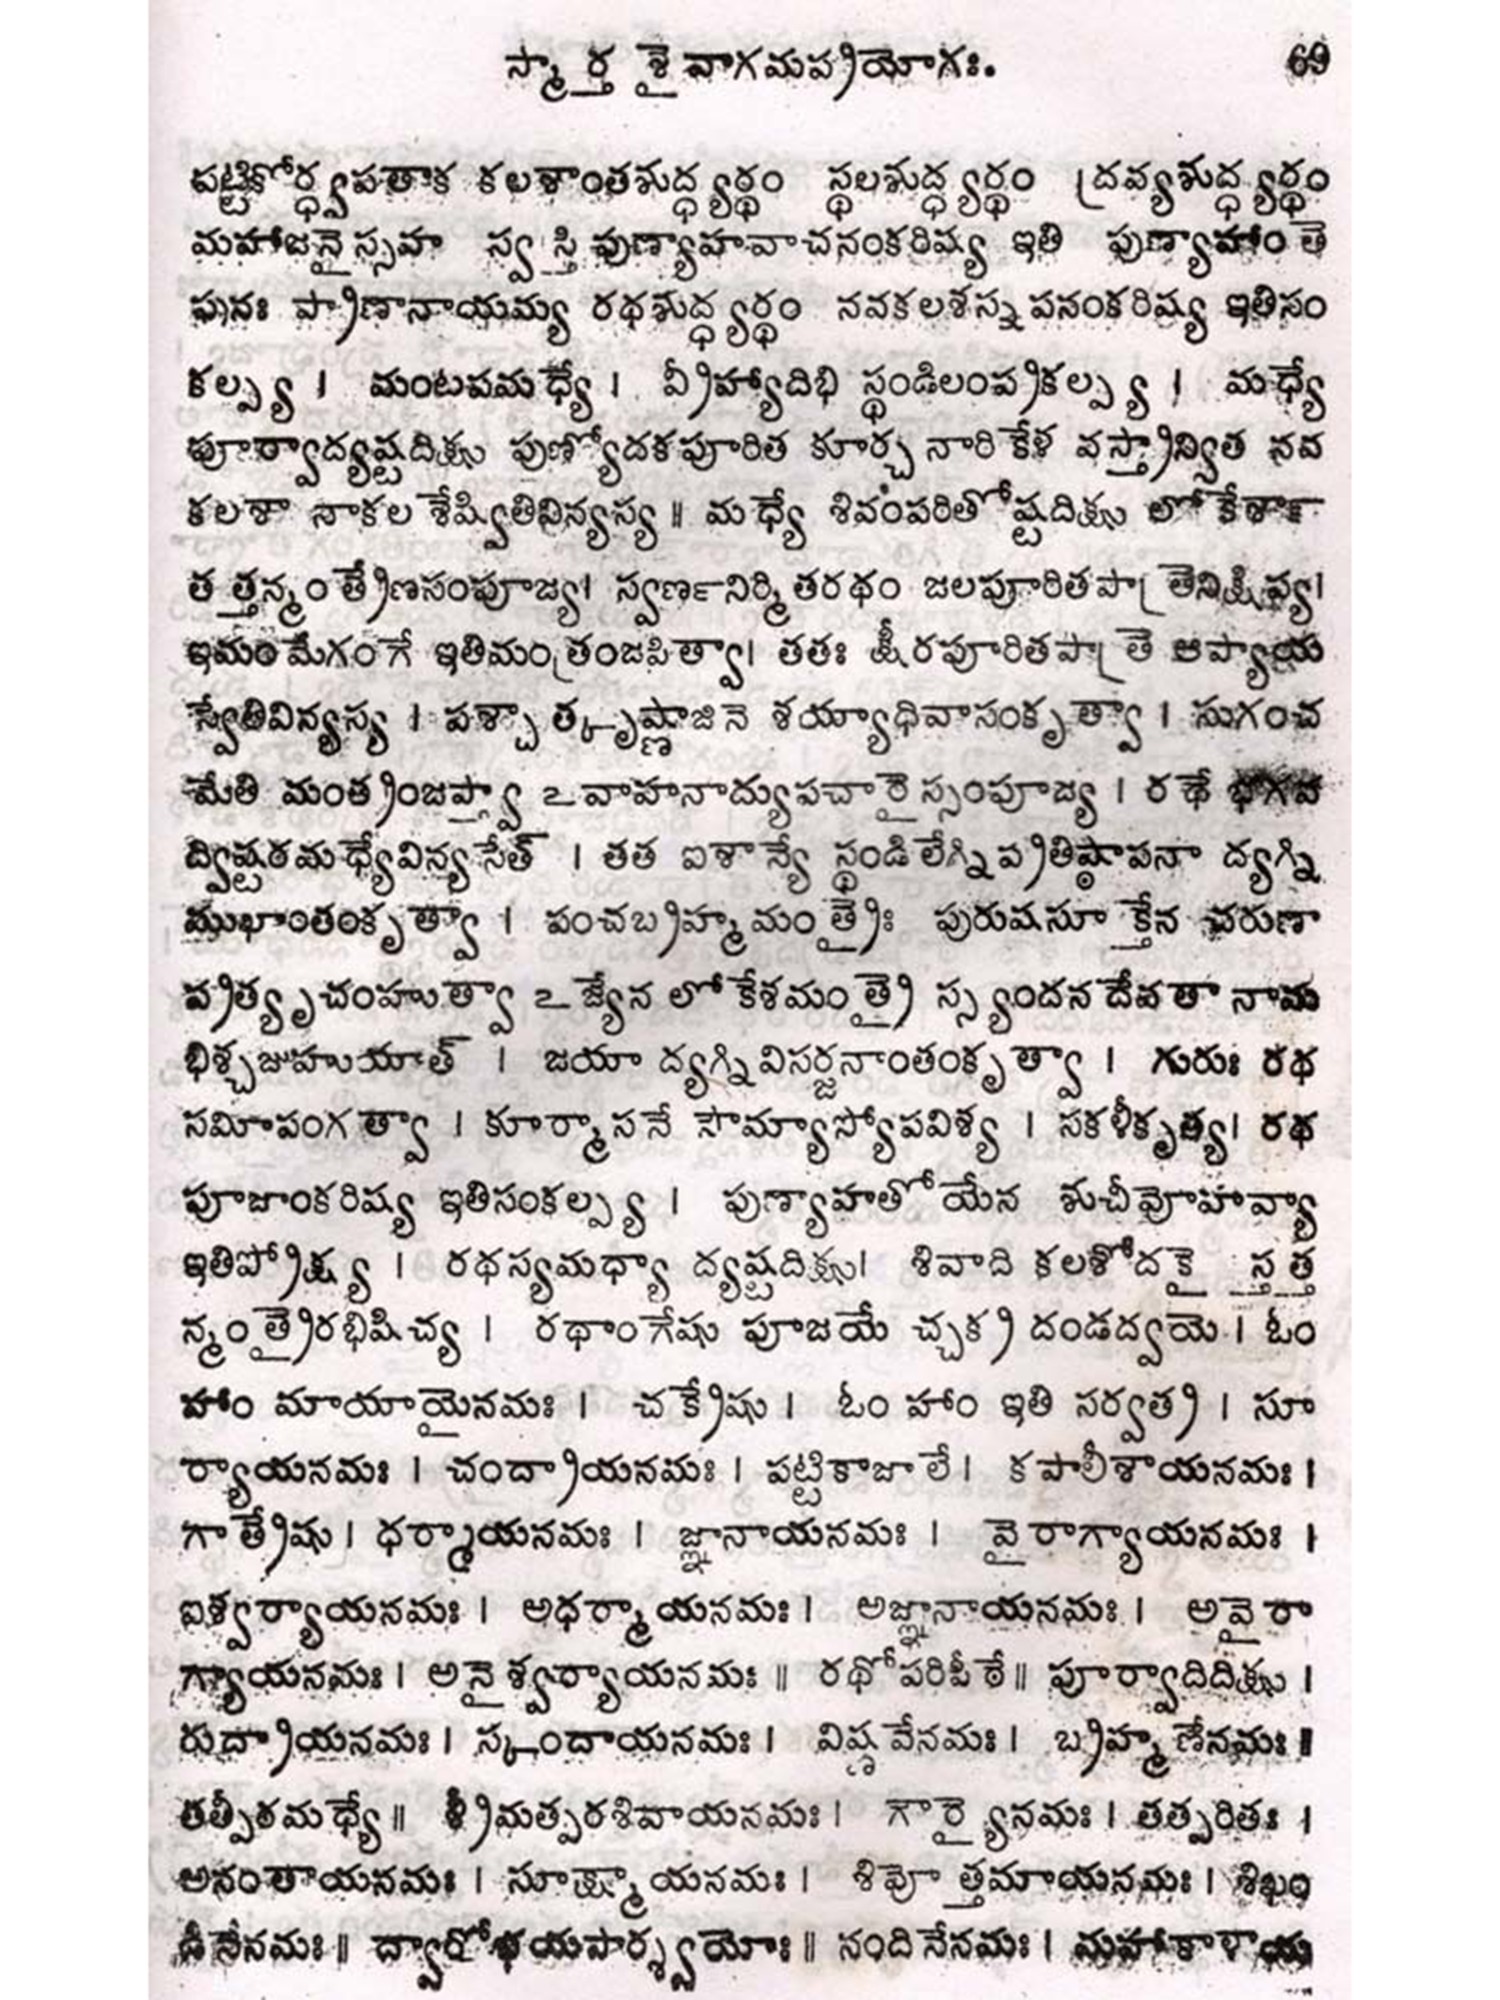 స్మార్త శైవాగమప్రయోగః. 69
పట్టికోర్ధ్వపతాక కలశాంతశుద్ధ్యర్థం స్థలశుద్ధ్యర్థం ద్రవ్యశుద్ధ్యర్థం
మహాజనైస్సహ స్వస్తిపుణ్యాహవాచనంకరిష్య ఇతి పుణ్యాహాంతె
పునః ప్రాణానాయమ్య రథశుద్ధ్యర్థం నవకలశస్నపనంకరిష్య ఇతిసం
కల్ప్య । మంటపమధ్యే । వ్రీహ్యాదిభి స్థండిలంప్రకల్ప్య । మధ్యే
పూర్వాద్యష్టదిక్షు పుణ్యోదకపూరిత కూర్చ నారికేళ వస్త్రాన్విత నవ
కలశా నాకలశేష్వితివిన్యస్య ॥ మధ్యే శివంపరితోష్టదిక్షు లోకేశాం
తత్తన్మంత్రేణసంపూజ్య। స్వర్ణనిర్మితరథం జలపూరితపాత్రెనిక్షిప్య।
ఇమంమేగంగే ఇతిమంత్రంజపిత్వా। తతః క్షీరపూరితపాత్రె ఆప్యాయ
స్వేతివిన్యస్య । పశ్చాత్కృష్ణాజినె శయ్యాధివాసంకృత్వా । సుగంచ
మేతి మంత్రంజప్త్వా ఽవాహనాద్యుపచారైస్సంపూజ్య । రథే భగవ
ద్విష్టరమధ్యేవిన్యసేత్ । తత ఐశాన్యే స్థండిలేగ్నిప్రతిష్ఠాపనా ద్యగ్ని
ముఖాంతంకృత్వా । పంచబ్రహ్మమంత్రైః పురుషసూక్తేన చరుణా
ప్రత్యృచంహుత్వా ఽజ్యేన లోకేశమంత్రై స్స్యందనదేవతా నామ
భిశ్చజుహుయాత్ । జయా ద్యగ్నివిసర్జనాంతంకృత్వా । గురుః రథ
సమీపంగత్వా । కూర్మాసనే సౌమ్యాస్యోపవిశ్య । సకళీకృత్య। రథ
పూజాంకరిష్య ఇతిసంకల్ప్య । పుణ్యాహతోయేన శుచీవోహవ్యా
ఇతిప్రోక్ష్య । రథస్యమధ్యా ద్యష్టదిక్షు। శివాది కలశోదకై స్తత్త
న్మంత్రైరభిషిచ్య । రథాంగేషు పూజయే చ్చక్ర దండద్వయె । ఓం
హాం మాయాయైనమః । చక్రేషు । ఓం హాం ఇతి సర్వత్ర । సూ
ర్యాయనమః । చంద్రాయనమః । పట్టికాజాలే। కపాలీశాయనమః ।
గాత్రేషు । ధర్మాయనమః । జ్ఞానాయనమః । వైరాగ్యాయనమః ।
ఐశ్వర్యాయనమః । అధర్మాయనమః । అజ్ఞానాయనమః । అవైరా
గ్యాయనమః । అనైశ్వర్యాయనమః ॥ రథోపరిపీఠే॥ పూర్వాదిదిక్షు ।
రుద్రాయనమః । స్కందాయనమః । విష్ణవేనమః । బ్రహ్మణేనమః ॥
తత్పీఠమధ్యే॥ శ్రీమత్పరశివాయనమః । గౌర్యైనమః । తత్పరితః ।
అనంతాయనమః । సూక్ష్మాయనమః । శివోత్తమాయనమః । శిఖం
డినేనమః ॥ ద్వారోభయపార్శ్వయోః ॥ నందినేనమః । మహాకాళాయ